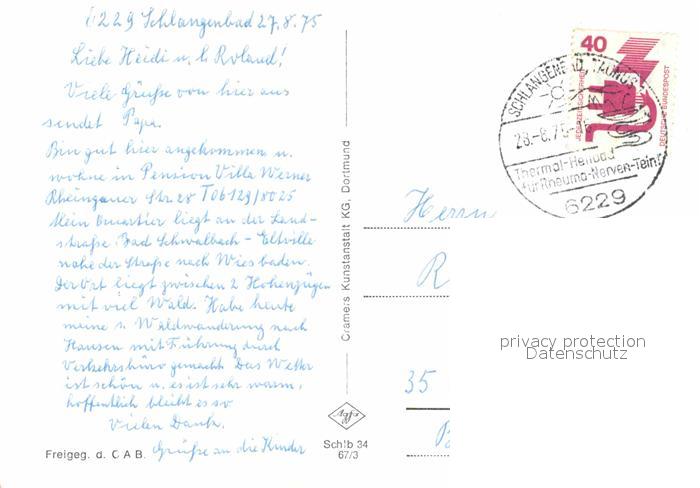 6229 Schlangenbad 27.8.75
Liebe Heidi u. lb Roland!
Viele Grüße von hier aus
sendet Papa.
Bin gut hier angekommen u.
wohne in Pension Villa Werner
Rheingauer Str. 28 T 06129/8025
Mein Quartier liegt an der Land-
straße Bad Schwalbach - Eltville
nahe der Straße nach Wiesbaden.
Der Ort liegt zwischen 2 Höhenzügen
mit viel Wald. Habe heute
meine 1. Waldwanderung nach
Hausen mit Führung durch
Verkehrsbüro gemacht. Das Wetter
ist schön u. es ist sehr warm,
hoffentlich bleibt es so
Vielen Dank.
Grüße an die Kinder
Freigeg. d. C A B.
Cramers Kunstanstalt KG, Dortmund
Agfa
Sch!b 34
67/3
Herrn
R
35
40
JEDERZEIT SICHERHEIT
DEUTSCHE BUNDESPOST
SCHLANGENBAD, TAUNUS
28.-8.75
Thermal-Heilbad
für Rheuma-Nerven-Teint
6229
privacy protection
Datenschutz